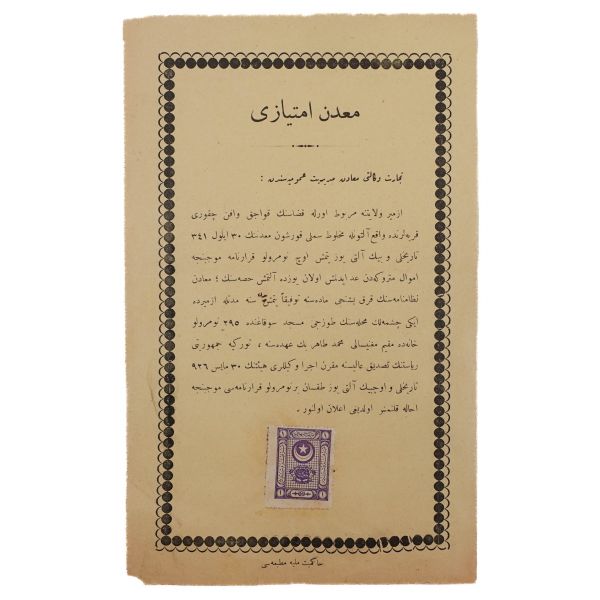 معدن امتیازی
تجارت وكالتی معادن مدیریت عمومیه‌سندن :
ازمیر ولایتنه مربوط اورله قضاسنك قواجق وافن چقوری
قریه‌لرنده واقع آلتونله مخلوط سملی قورشون معدننك ٣٠ ایلول ٣٤١
تاریخلی و بیك آلتی یوز یتمش اوچ نومرولو قرارنامه موجبنجه
اموال متروكه‌دن عد ایدیلمش اولان یوزده آلتمش حصه‌سنك ؛ معادن
نظامنامه‌سنك قرق بشنجی ماده‌سنه توفیقاً یتمش سنه مدتله ازمیرده
ایكی چشمه‌لك محله‌سنك طوزجی مسجد سوقاغنده ٢٩٥ نومرولو
خانه‌ده مقیم مغنیسالی محمد طاهر بك عهده‌سنه ، توركیه جمهوریتی
ریاستنك تصدیق عالیسنه مقترن اجرا وكیللری هیئتنك ٣٠ مایس ٩٢٦
تاریخلی و اوچبیك آلتی یوز طقسان بر نومرولو قرارنامه‌سی موجبنجه
احاله قلنمش اولدیغی اعلان اولنور .
حاكمیت ملیه مطبعه‌سی